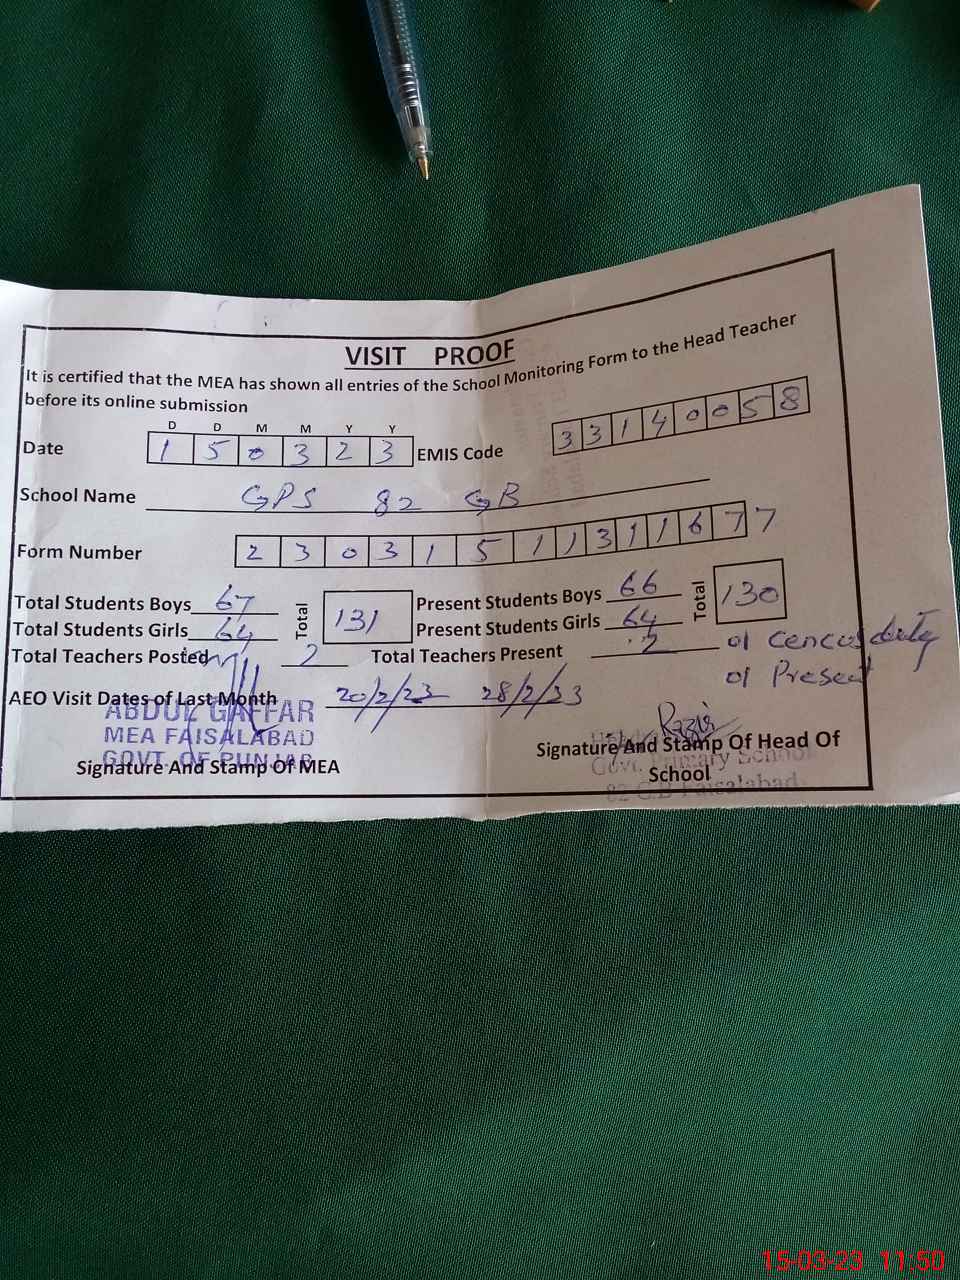 VISIT PROOF
It is certified that the MEA has shown all entries of the School Monitoring Form to the Head Teacher
before its online submission
D D M M Y Y
Date 1 5 0 3 2 3 EMIS Code 3 3 1 4 0 0 5 8
School Name GPS 82 GB
Form Number 2 3 0 3 1 5 1 1 3 1 1 6 7 7
Total Students Boys 67 Total 131 Present Students Boys 66 Total 130
Total Students Girls 64 Present Students Girls 64
Total Teachers Posted 2 Total Teachers Present 2 01 cencus duty
01 Present
AEO Visit Dates of Last Month 20/2/23 28/2/23
ABDUL GAFFAR
MEA FAISALABAD
GOVT. OF PUNJAB
Signature And Stamp Of MEA
Razia
Signature And Stamp Of Head Of
School
Govt. Primary School
82 G.B Faisalabad.
15-03-23 11:50